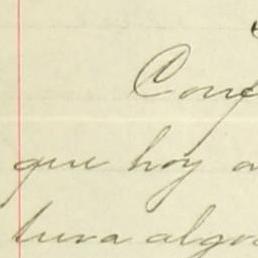 Conf
que hoy a
tura algu